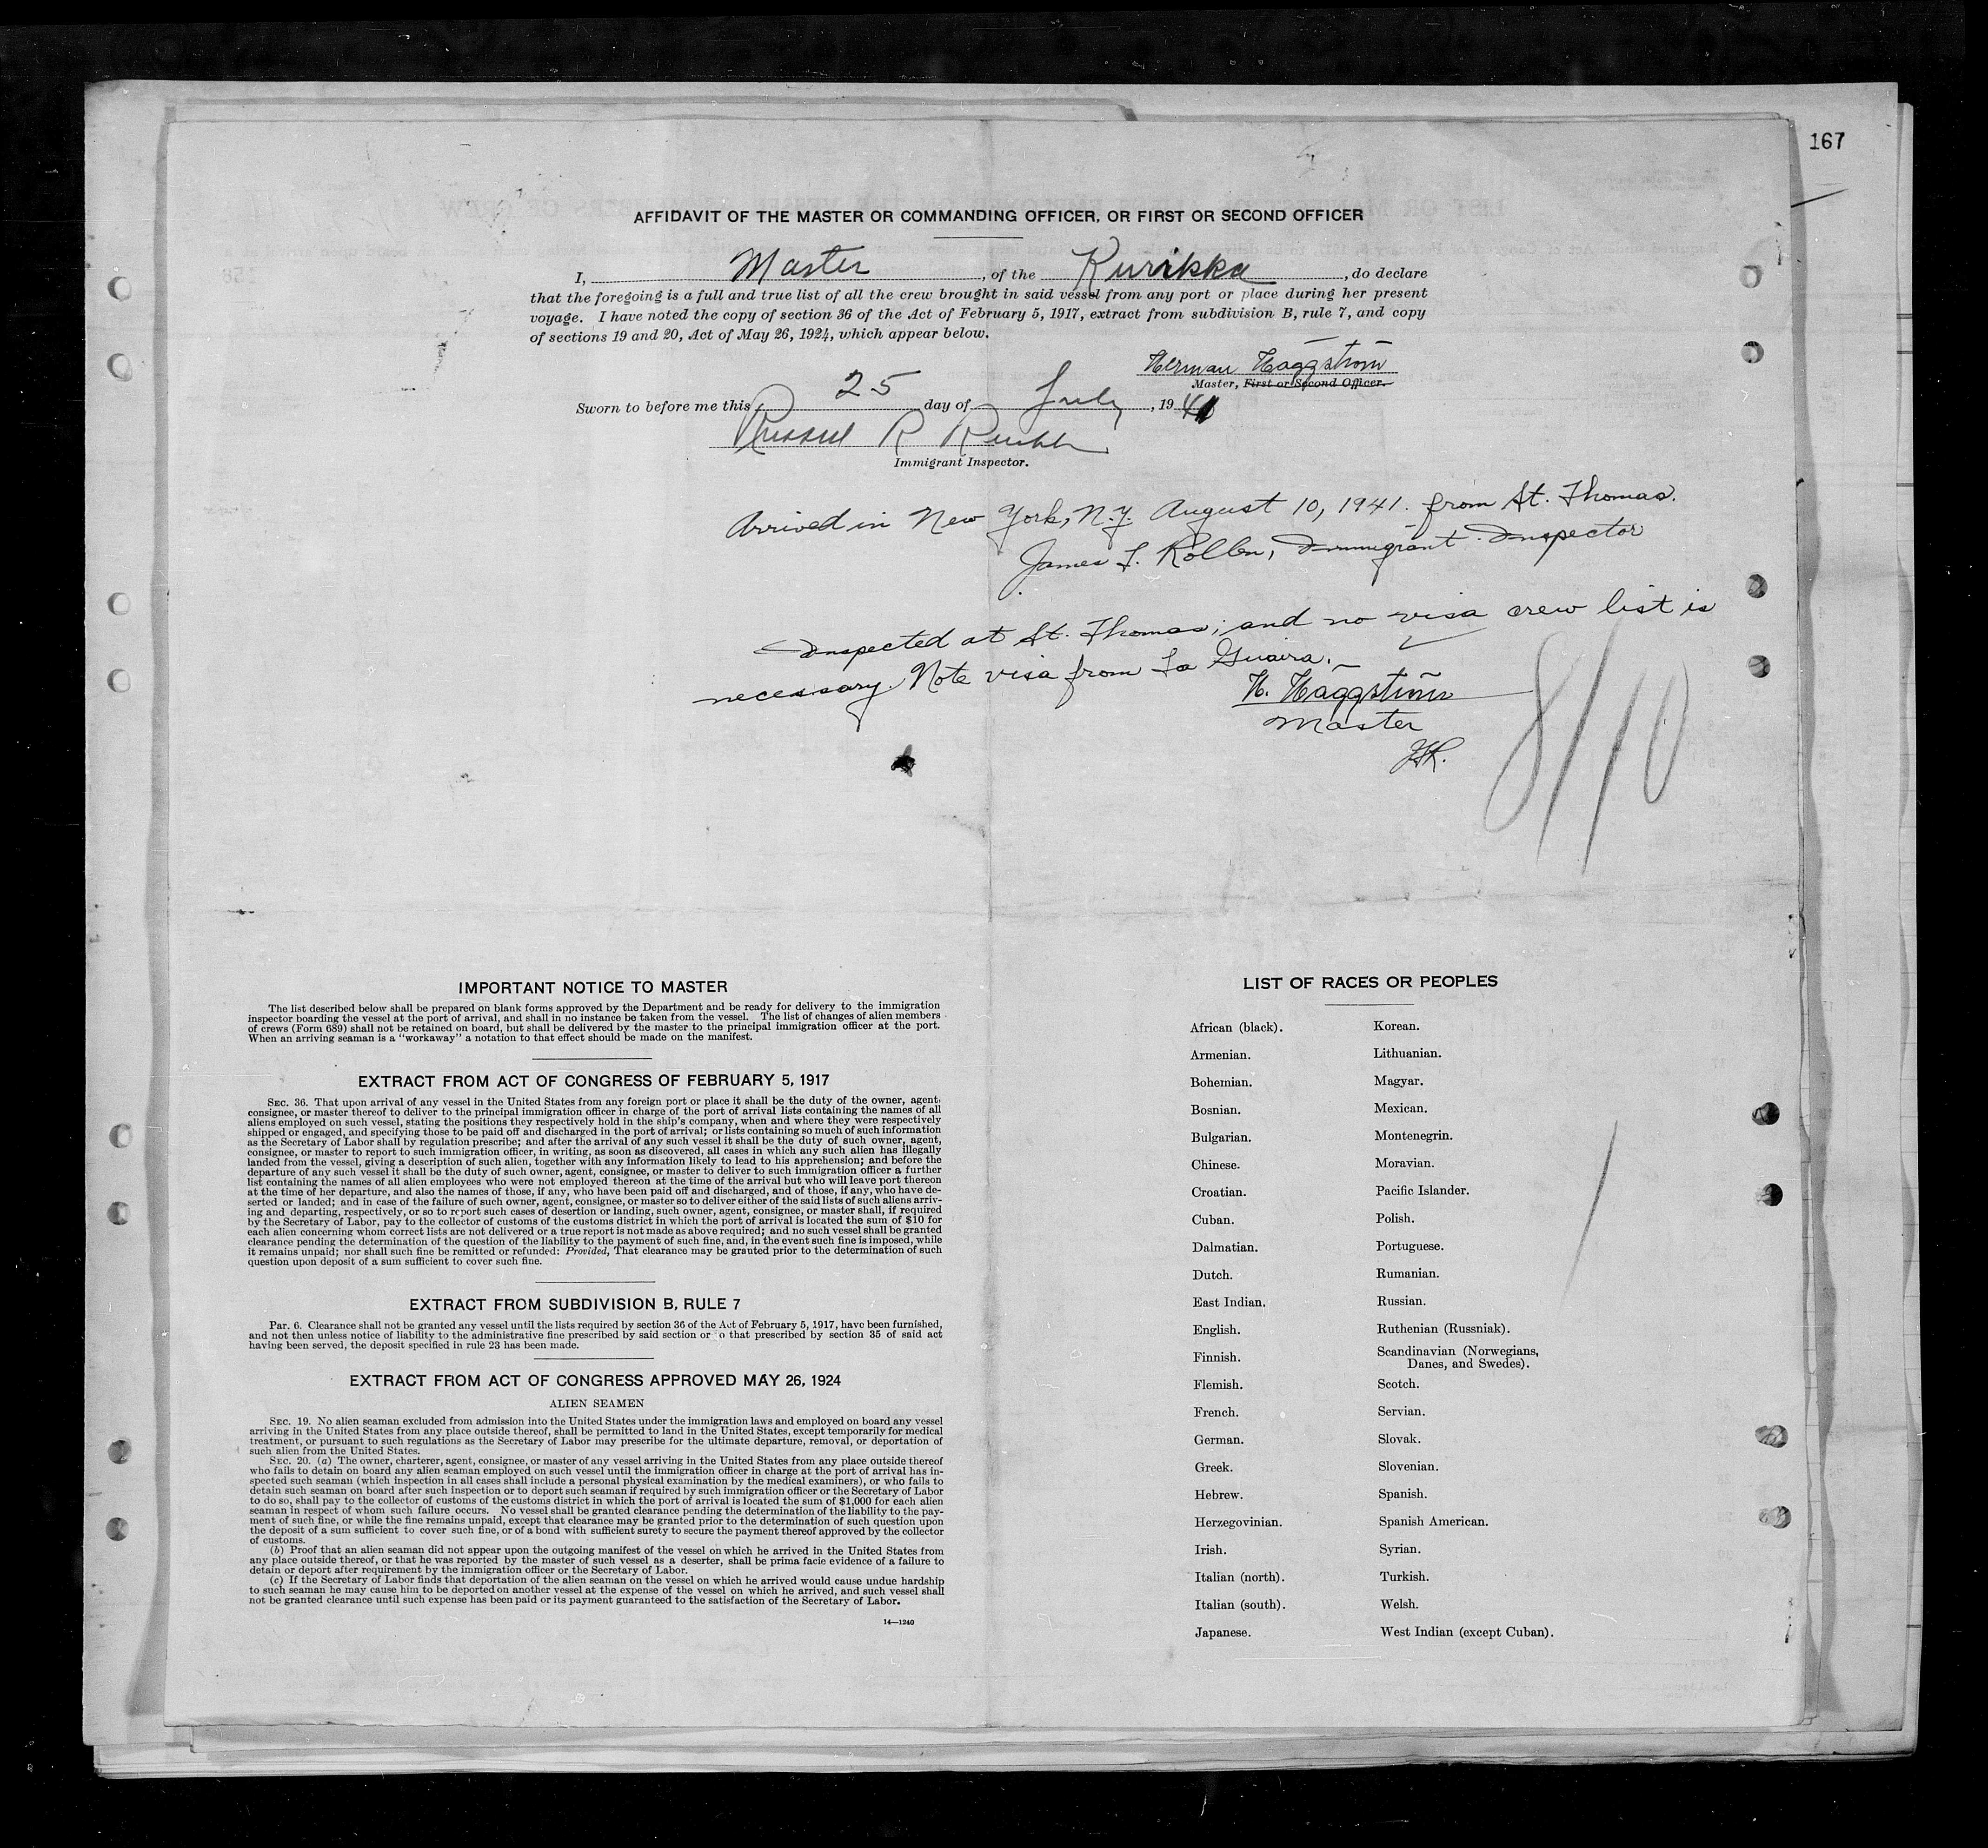 167
AFFIDAVIT OF THE MASTER OR COMMANDING OFFICER, OR FIRST OR SECOND OFFICER
I, Master, of the Kurikka, do declare
that the foregoing is a full and true list of all the crew brought in said vessel from any port or place during her present
voyage. I have noted the copy of section 36 of the Act of February 5, 1917, extract from subdivision B, rule 7, and copy
of sections 19 and 20, Act of May 26, 1924, which appear below.
Herman Häggström
Master, First or Second Officer.
Sworn to before me this 25 day of July, 1941
Russel R
Immigrant Inspector.
Arrived in New York, N.Y. August 10, 1941. from St. Thomas.
James F. Rollen, Immigrant Inspector
Inspected at St. Thomas; and no visa crew list is
necessary. Note visa from La Guaira.
H. Häggström
Master
JFR.
8/10
IMPORTANT NOTICE TO MASTER
The list described below shall be prepared on blank forms approved by the Department and be ready for delivery to the immigration
inspector boarding the vessel at the port of arrival, and shall in no instance be taken from the vessel. The list of changes of alien members
of crews (Form 689) shall not be retained on board, but shall be delivered by the master to the principal immigration officer at the port.
When an arriving seaman is a "workaway" a notation to that effect should be made on the manifest.
EXTRACT FROM ACT OF CONGRESS OF FEBRUARY 5, 1917
SEC. 36. That upon arrival of any vessel in the United States from any foreign port or place it shall be the duty of the owner, agent,
consignee, or master thereof to deliver to the principal immigration officer in charge of the port of arrival lists containing the names of all
aliens employed on such vessel, stating the positions they respectively hold in the ship's company, when and where they were respectively
shipped or engaged, and specifying those to be paid off and discharged in the port of arrival; or lists containing so much of such information
as the Secretary of Labor shall by regulation prescribe; and after the arrival of any such vessel it shall be the duty of such owner, agent,
consignee, or master to report to such immigration officer, in writing, as soon as discovered, all cases in which any such alien has illegally
landed from the vessel, giving a description of such alien, together with any information likely to lead to his apprehension; and before the
departure of any such vessel it shall be the duty of such owner, agent, consignee, or master to deliver to such immigration officer a further
list containing the names of all alien employees who were not employed thereon at the time of the arrival but who will leave port thereon
at the time of her departure, and also the names of those, if any, who have been paid off and discharged, and of those, if any, who have de-
serted or landed; and in case of the failure of such owner, agent, consignee, or master so to deliver either of the said lists of such aliens arriv-
ing and departing, respectively, or so to report such cases of desertion or landing, such owner, agent, consignee, or master shall, if required
by the Secretary of Labor, pay to the collector of customs of the customs district in which the port of arrival is located the sum of $10 for
each alien concerning whom correct lists are not delivered or a true report is not made as above required; and no such vessel shall be granted
clearance pending the determination of the question of the liability to the payment of such fine, and, in the event such fine is imposed, while
it remains unpaid; nor shall such fine be remitted or refunded: Provided, That clearance may be granted prior to the determination of such
question upon deposit of a sum sufficient to cover such fine.
EXTRACT FROM SUBDIVISION B, RULE 7
PAR. 6. Clearance shall not be granted any vessel until the lists required by section 36 of the Act of February 5, 1917, have been furnished,
and not then unless notice of liability to the administrative fine prescribed by said section or to that prescribed by section 35 of said act
having been served, the deposit specified in rule 23 has been made.
EXTRACT FROM ACT OF CONGRESS APPROVED MAY 26, 1924
ALIEN SEAMEN
SEC. 19. No alien seaman excluded from admission into the United States under the immigration laws and employed on board any vessel
arriving in the United States from any place outside thereof, shall be permitted to land in the United States, except temporarily for medical
treatment, or pursuant to such regulations as the Secretary of Labor may prescribe for the ultimate departure, removal, or deportation of
such alien from the United States.
SEC. 20. (a) The owner, charterer, agent, consignee, or master of any vessel arriving in the United States from any place outside thereof
who fails to detain on board any alien seaman employed on such vessel until the immigration officer in charge at the port of arrival has in-
spected such seaman (which inspection in all cases shall include a personal physical examination by the medical examiners), or who fails to
detain such seaman on board after such inspection or to deport such seaman if required by such immigration officer or the Secretary of Labor
to do so, shall pay to the collector of customs of the customs district in which the port of arrival is located the sum of $1,000 for each alien
seaman in respect of whom such failure occurs. No vessel shall be granted clearance pending the determination of the liability to the pay-
ment of such fine, or while the fine remains unpaid, except that clearance may be granted prior to the determination of such question upon
the deposit of a sum sufficient to cover such fine, or of a bond with sufficient surety to secure the payment thereof approved by the collector
of customs.
(b) Proof that an alien seaman did not appear upon the outgoing manifest of the vessel on which he arrived in the United States from
any place outside thereof, or that he was reported by the master of such vessel as a deserter, shall be prima facie evidence of a failure to
detain or deport after requirement by the immigration officer or the Secretary of Labor.
(c) If the Secretary of Labor finds that deportation of the alien seaman on the vessel on which he arrived would cause undue hardship
to such seaman he may cause him to be deported on another vessel at the expense of the vessel on which he arrived, and such vessel shall
not be granted clearance until such expense has been paid or its payment guaranteed to the satisfaction of the Secretary of Labor.
14—1240
LIST OF RACES OR PEOPLES
African (black).
Armenian.
Bohemian.
Bosnian.
Bulgarian.
Chinese.
Croatian.
Cuban.
Dalmatian.
Dutch.
East Indian.
English.
Finnish.
Flemish.
French.
German.
Greek.
Hebrew.
Herzegovinian.
Irish.
Italian (north).
Italian (south).
Japanese.
Korean.
Lithuanian.
Magyar.
Mexican.
Montenegrin.
Moravian.
Pacific Islander.
Polish.
Portuguese.
Rumanian.
Russian.
Ruthenian (Russniak).
Scandinavian (Norwegians,
Danes, and Swedes).
Scotch.
Servian.
Slovak.
Slovenian.
Spanish.
Spanish American.
Syrian.
Turkish.
Welsh.
West Indian (except Cuban).